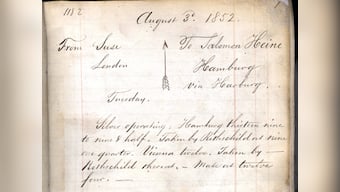 1152
August 3d. 1852.
From Suse To Salomon Heine
London Hamburg
via Harburg.
Tuesday.
Slow operating. Hamburg thirteen nine
to nine & half. Taken by Rothschild at nine
one quarter. Vienna twelve. Taken by —
Rothschild several. — Mase at twelve
four. —